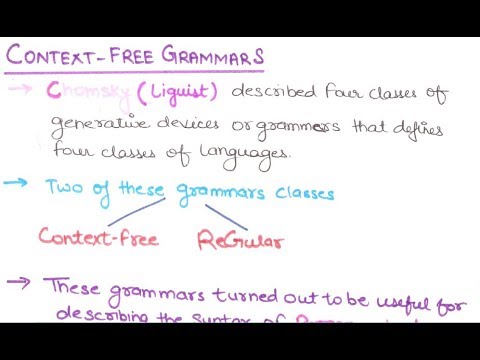 CONTEXT-FREE GRAMMARS
→ Chomsky (Liguist) described four classes of
generative devices or grammers that defines
four classes of languages.
→ Two of these grammars classes
Context-free ReGular
→ These grammars turned out to be useful for
describing the syntax of